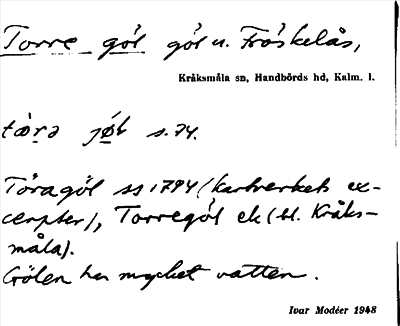 Torre göl göl u. Fröskelås,
Kråksmåla sn, Handbörds hd, Kalm. l.
tòrə jǿl s. 74.
Töragöl ss 1794 (kartverkets ex-
cerpter), Torregöl ek (bl. Kråks-
måla).
Gölen har mycket vatten.
Ivar Modéer 1948